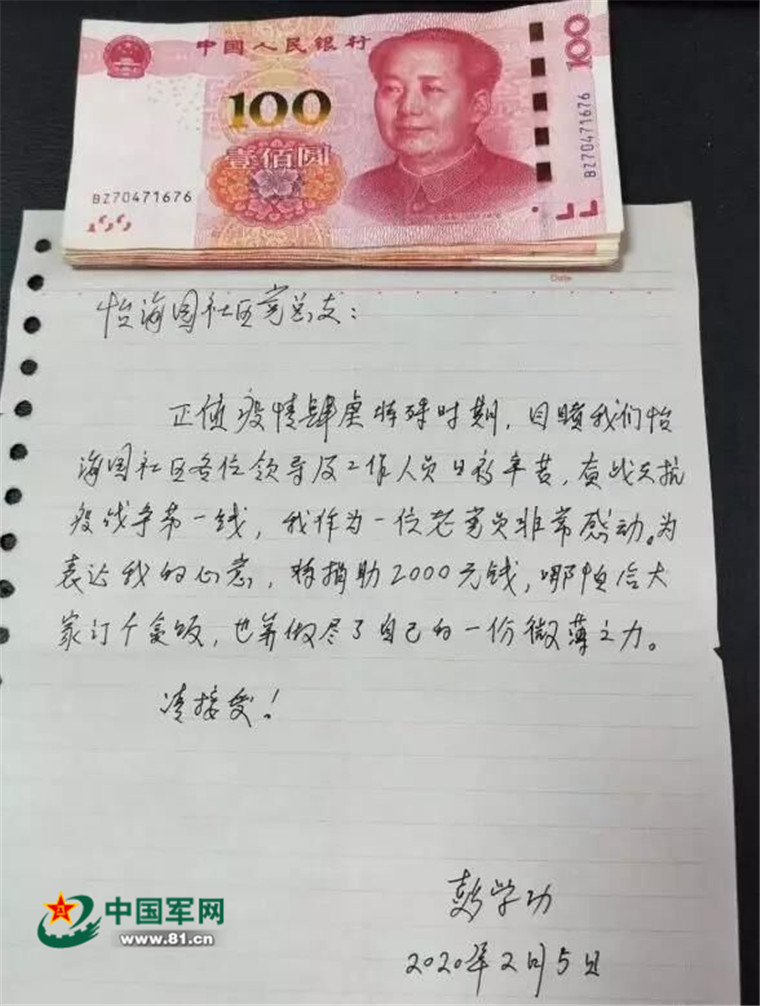 中国人民银行
100
100
壹佰圆
BZ70471676
BZ70471676
Date
怡海园社区党总支：
正值疫情肆虐特殊时期，目睹我们怡
海园社区各位领导及工作人员日夜辛苦，奋战在抗
疫战争第一线，我作为一位老党员非常感动。为
表达我的心意，特捐助2000元钱，哪怕给大
家订个盒饭，也算做尽了自己的一份微薄之力。
请接受！
彭学功
2020年2月5日
中国军网
www.81.cn